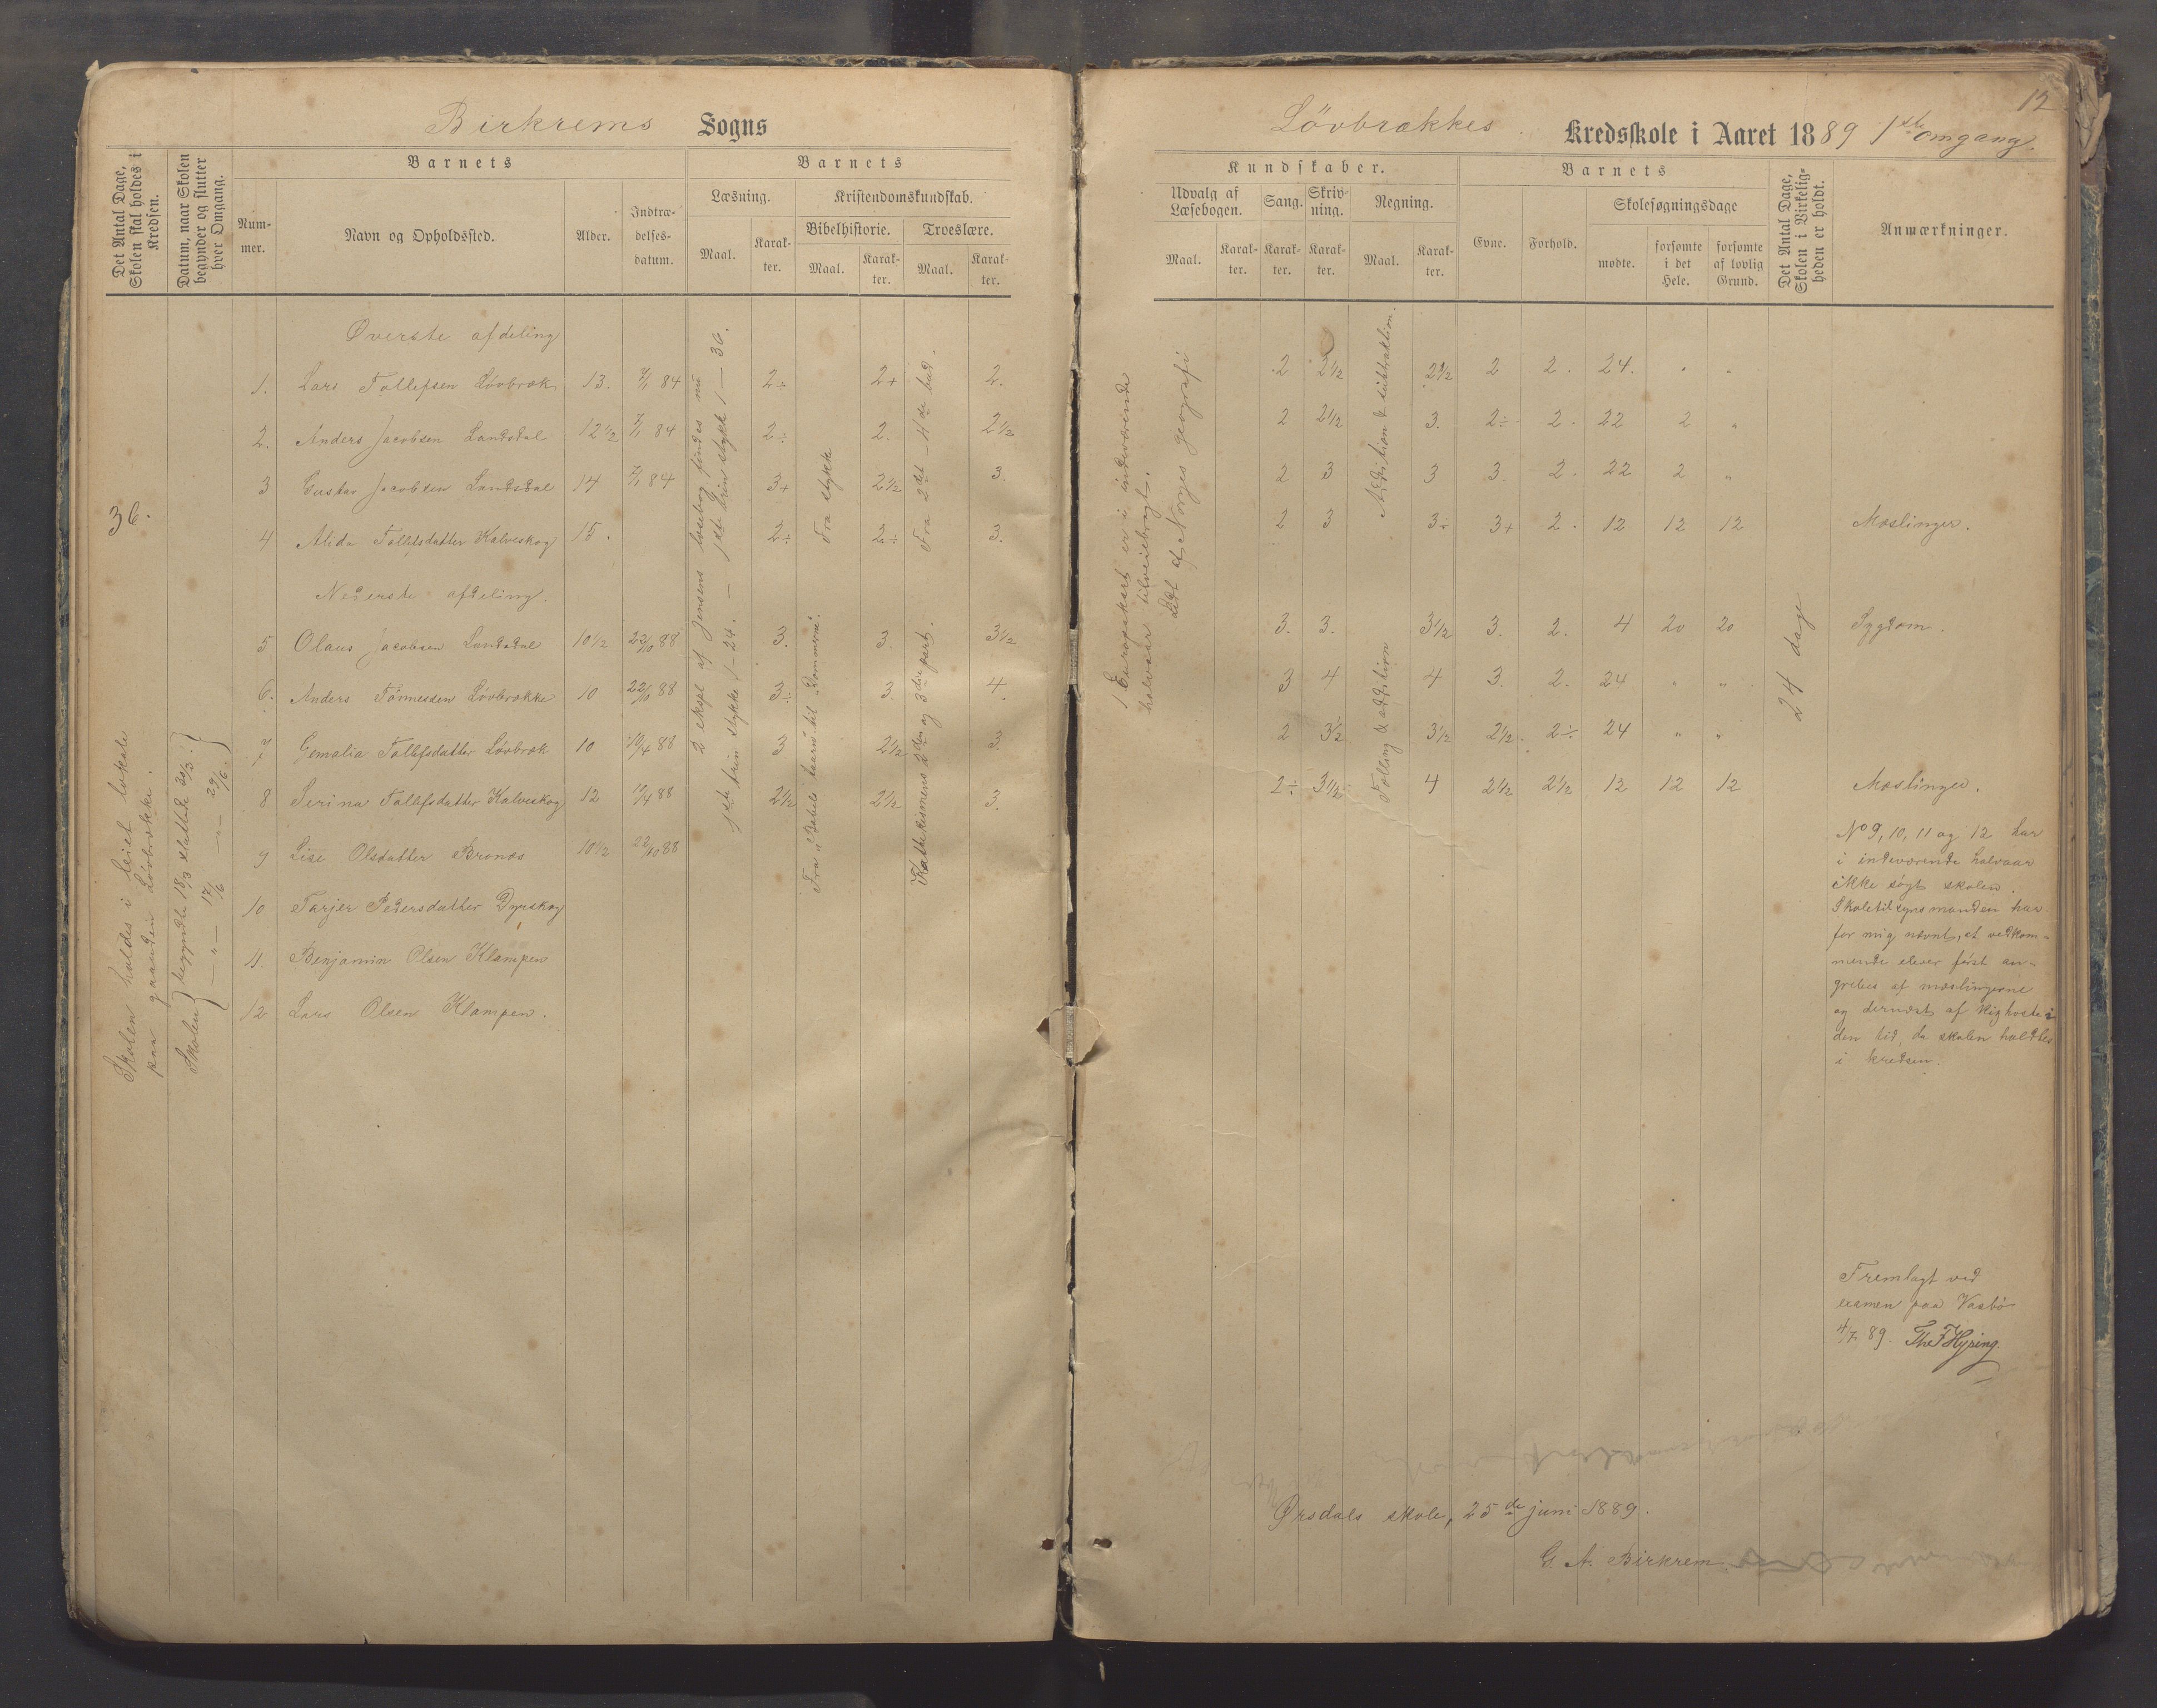 Birkrems Sogns
Det Antal Dage, Skolen skal holdes i Kredsen.
Datum, naar Skolen begynder og slutter hver Omgang.
Barnets
Barnets
Num-mer.
Navn og Opholdssted.
Alder.
Indtræ-delses-datum.
Læsning.
Kristendomskundskab.
Bibelhistorie.
Troeslære.
Maal.
Karak-ter.
Maal.
Karak-ter.
Maal.
Karak-ter.
Øverste afdeling
1. Lars Tollefsen Løvbræk 13. 7/1 84 2÷ 2+ 2.
2. Anders Jacobsen Landsdal 12½ 7/1 84 2÷ 2. 2½
3 Gustav Jacobsen Landsdal 14 7/1 84 3+ 2½ 3.
4 Alida Tollefsdatter Kalveskog 15. 2÷ 2÷ 3.
Nederste afdeling.
5 Olaus Jacobsen Landsdal 10½ 22/10 88 3. 3. 3½
6. Anders Tønnessen Løvbrække 10 22/10 88 3÷ 3. 4.
7 Gemalia Tollefsdatter Løvbræk 10 10/4 88 3 2½ 3.
8 Serina Tollefsdatter Kalveskog 12 10/4 88 2½ 2½ 3.
9 Lise Olsdatter Bronæs 10½ 22/10 88
10 Tarjer Pedersdatter Dyrskog
11. Benjamin Olsen Klampen
12 Lars Olsen Klampen.
36.
Skolen holdes i leiet lokale
paa gaarden Løvbrække.
Skolen begyndte 18/3 sluttede 30/3.
— " — 17/6 — " — 29/6.
2 expl af Jensens læsebog findes nu
1ste trin stykke 1–24. — 1ste trin stykke 1 — 36.
Fra stykke
Fra "Babels taarn" til "Dommerne".
Fra 2det – 4de bud.
Kathekismens 2den og 3die part.
12
Løvbrækkes Kredsskole i Aaret 1889 1ste omgang.
Kundskaber.
Barnets
Udvalg af Læsebogen.
Sang.
Skriv-ning.
Regning.
Evne.
Forhold.
Skolesøgningsdage
Det Antal Dage, Skolen i Virkelig-heden er holdt.
Anmærkninger.
Maal.
Karak-ter.
Karak-ter.
Karak-ter.
Maal.
Karak-ter.
mødte.
forsømte i det Hele.
forsømte af lovlig Grund.
2 2½ 2½ 2 2. 24. " "
2 2½ 3. 2÷ 2. 22 2 "
2 3 3 3. 2. 22 2 "
2 3 3÷ 3+ 2. 12 12 12 Mæslinger.
3. 3. 3½ 3. 2. 4 20 20 Sygdom.
3 4 4 3. 2. 24 " "
2 3½ 3½ 2½. 2÷ 24 " "
2÷ 3½ 4 2½ 2½ 12 12 12 Mæslinger.
1 Europakart er i indeværende
halvaar tilveiebragt.
Lidt af Norges geografi
Addition & subtraktion.
Tælling & addition
24 dage
No 9, 10, 11 og 12 har
i indeværende halvaar
ikke søgt skolen.
Skoletilsynsmanden har
for mig nævnt, at vedkom-
mende elever først an-
grebes af mæslingerne
og dernæst af kighoste i
den tid, da skolen holdtes
i kredsen.
Fremlagt ved
examen paa Vasbø
4/7 89. Th. F Hysing.
Ørsdals skole, 25de juni 1889.
G. A. Birkrem